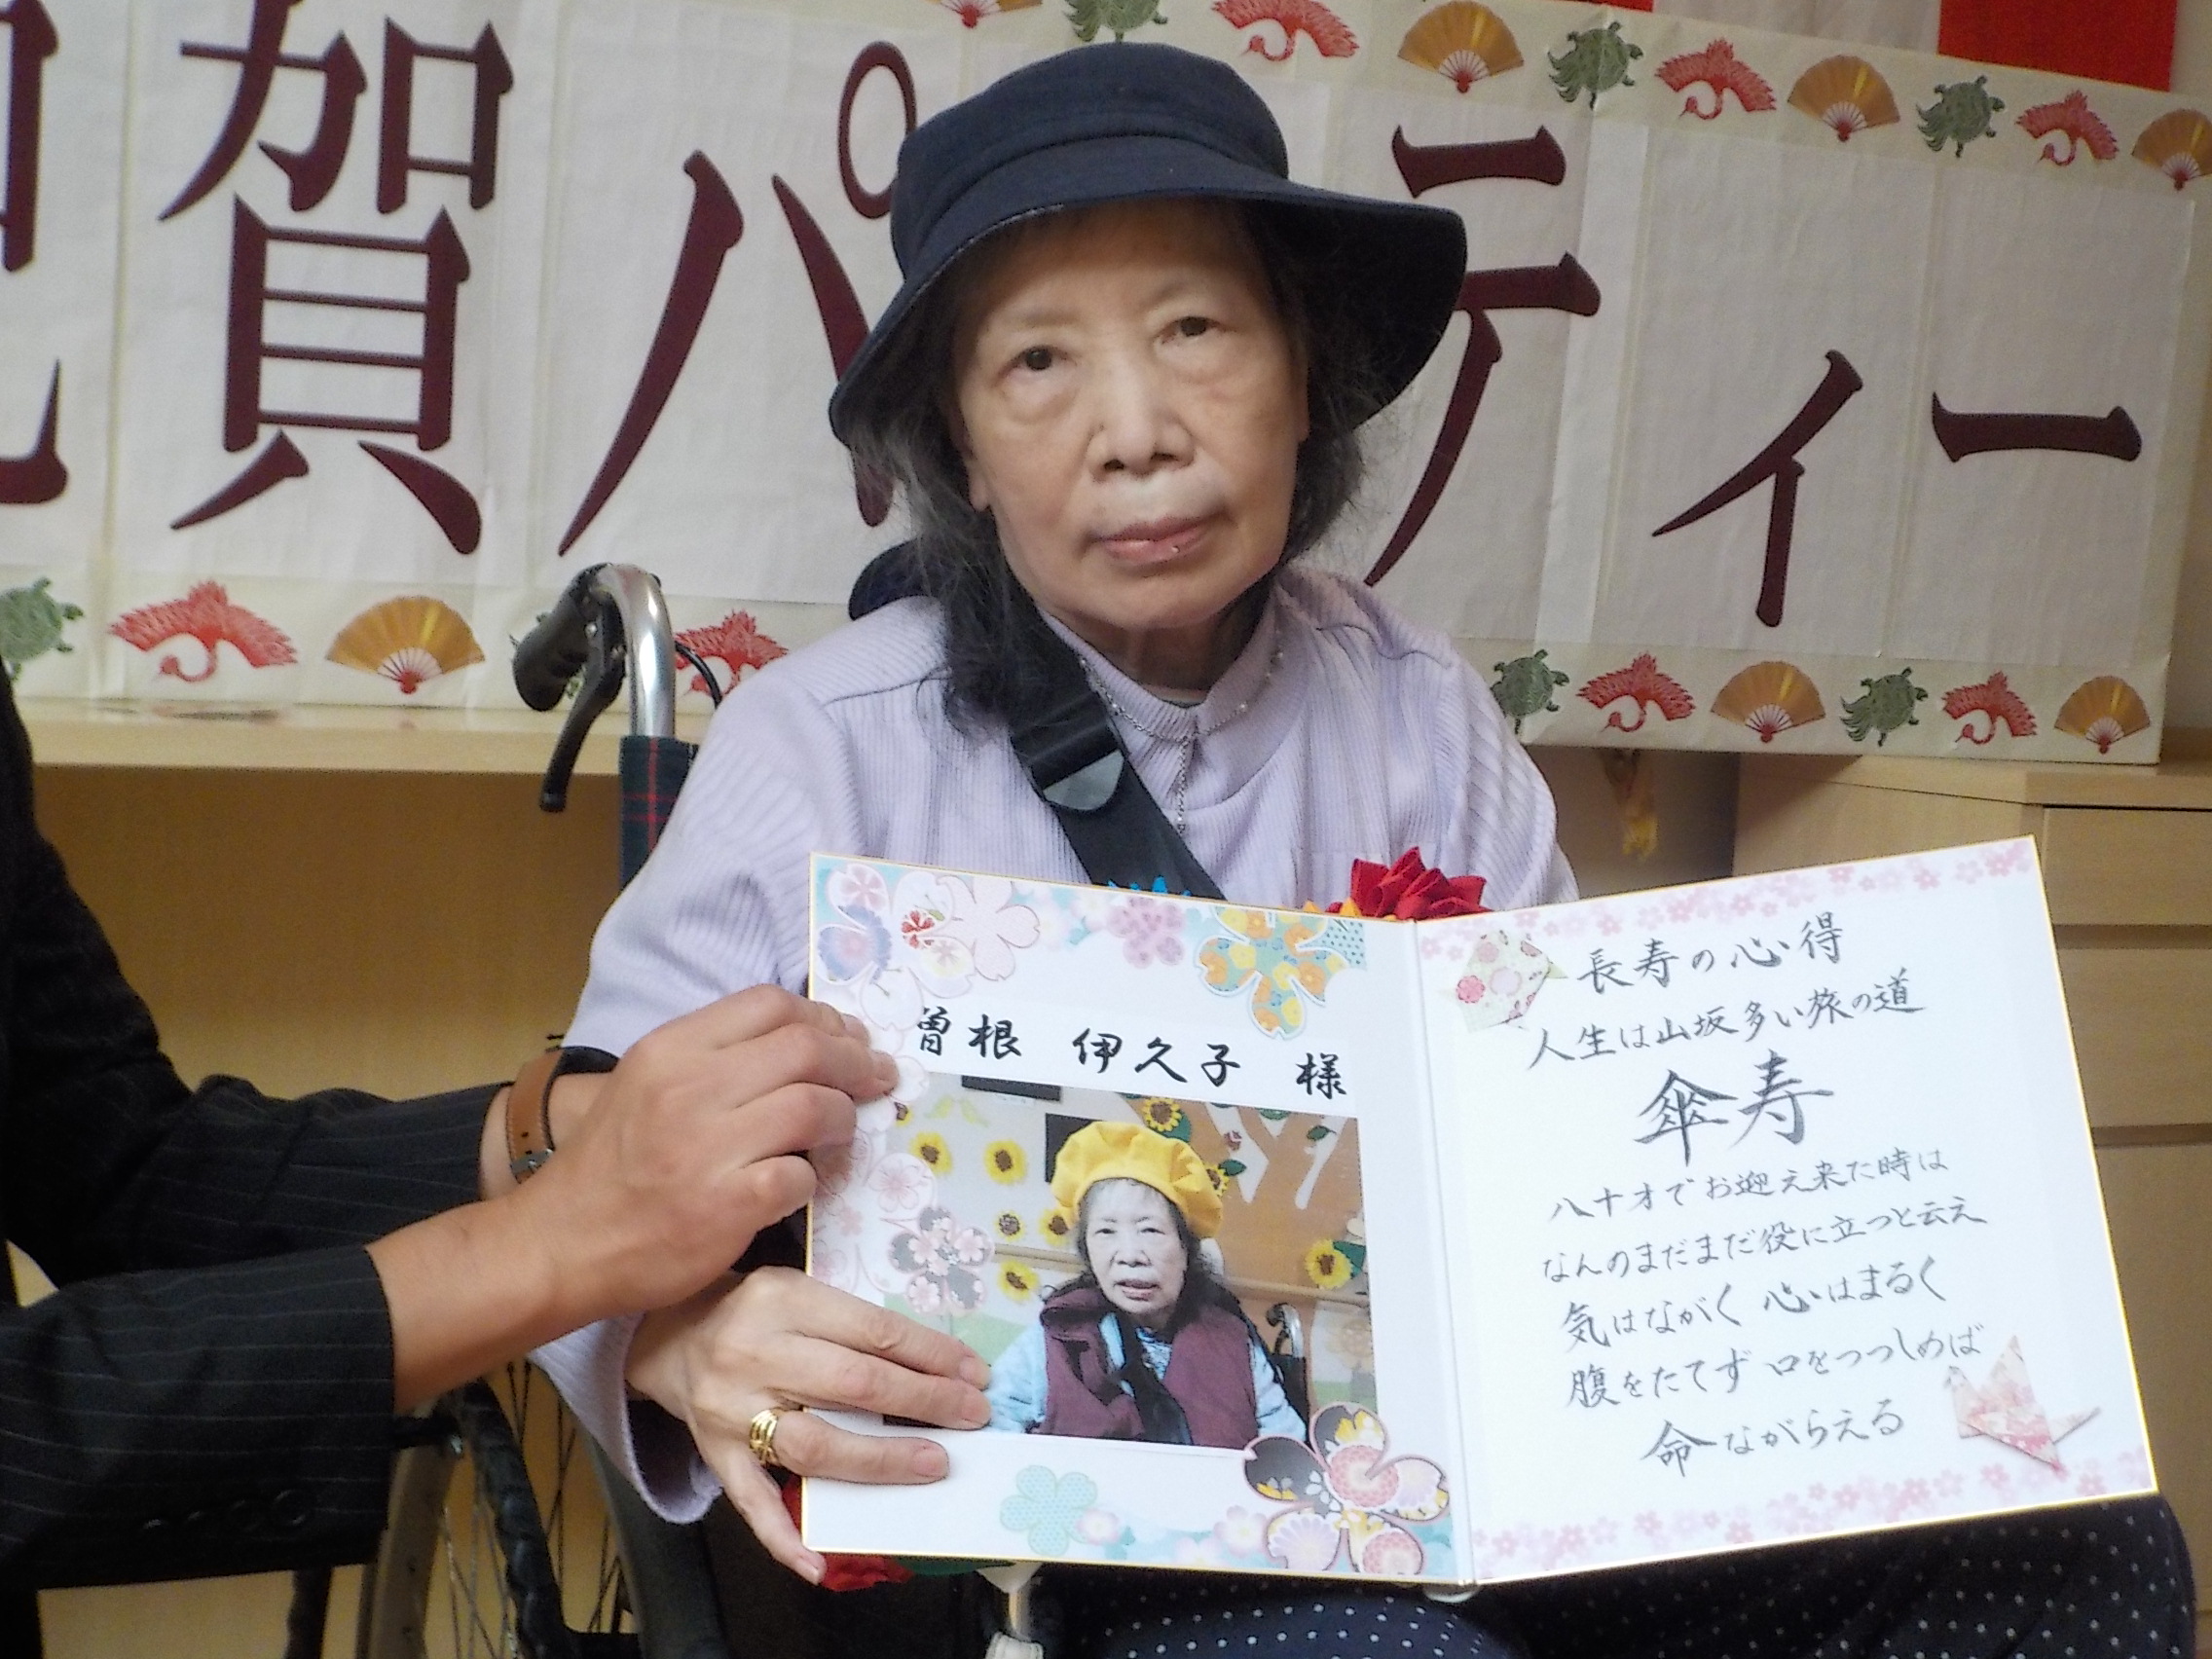 祝賀パーティー
曽根 伊久子 様
長寿の心得
人生は山坂多い旅の道
傘寿
八十才でお迎え来た時は
なんのまだまだ役に立つと云え
気はながく 心はまるく
腹をたてず 口をつつしめば
命ながらえる